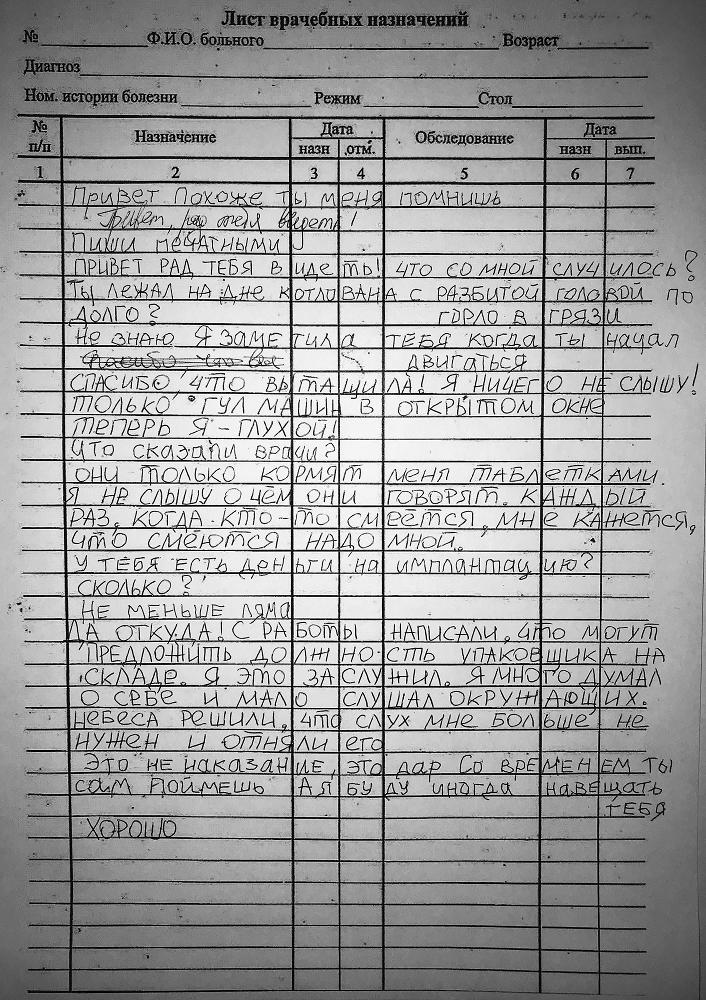 Лист врачебных назначений
№ Ф.И.О. больного Возраст
Диагноз
Ном. истории болезни Режим Стол
№ п/п Назначение Дата Обследование Дата
назн отм. назн вып.
1 2 3 4 5 6 7
Привет Похоже ты меня помнишь
Привет, рад тебя видеть!
Пиши печатными
ПРИВЕТ РАД ТЕБЯ ВИДЕТЬ! ЧТО СО МНОЙ СЛУЧИЛОСЬ?
Ты лежал на дне котлована с разбитой головой по
ДОЛГО? горло в грязи
Не знаю Я заметила тебя когда ты начал
Спасибо, что вы двигаться
СПАСИБО, ЧТО ВЫТАЩИЛА! Я НИЧЕГО НЕ СЛЫШУ!
ТОЛЬКО ГУЛ МАШИН В ОТКРЫТОМ ОКНЕ
ТЕПЕРЬ Я - ГЛУХОЙ!
Что сказали врачи?
ОНИ ТОЛЬКО КОРМЯТ МЕНЯ ТАБЛЕТКАМИ.
Я НЕ СЛЫШУ О ЧЕМ ОНИ ГОВОРЯТ. КАЖДЫЙ
РАЗ, КОГДА КТО-ТО СМЕЁТСЯ, МНЕ КАЖЕТСЯ,
ЧТО СМЕЮТСЯ НАДО МНОЙ.
У тебя есть деньги на имплантацию?
СКОЛЬКО?
Не меньше ляма
ДА ОТКУДА! С РАБОТЫ НАПИСАЛИ, ЧТО МОГУТ
ПРЕДЛОЖИТЬ ДОЛЖНОСТЬ УПАКОВЩИКА НА
СКЛАДЕ. Я ЭТО ЗАСЛУЖИЛ. Я МНОГО ДУМАЛ
О СЕБЕ И МАЛО СЛУШАЛ ОКРУЖАЮЩИХ.
НЕБЕСА РЕШИЛИ, ЧТО СЛУХ МНЕ БОЛЬШЕ НЕ
НУЖЕН И ОТНЯЛИ ЕГО
Это не наказание, это дар Со временем ты
сам поймешь А я буду иногда навещать
тебя
ХОРОШО